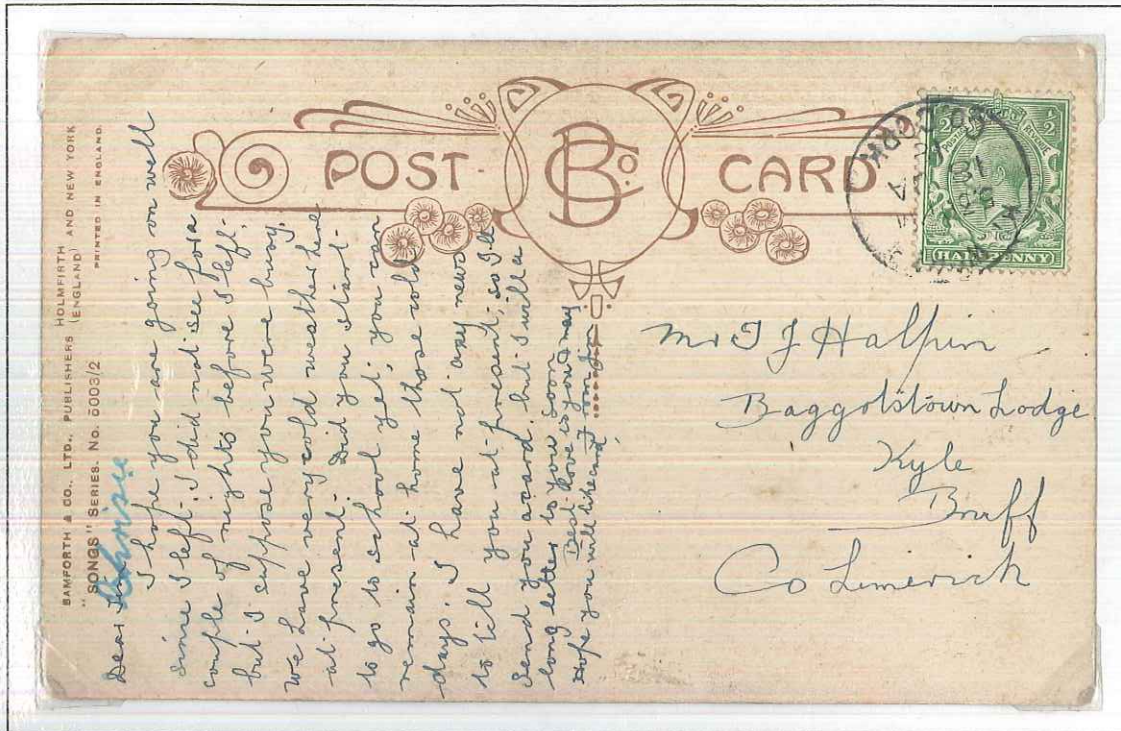 BAMFORTH & CO., LTD., PUBLISHERS HOLMFIRTH (ENGLAND) AND NEW YORK
"SONGS" SERIES. No. 5003/2
PRINTED IN ENGLAND.
POST CARD
B Co.
HALFPENNY
Dear
I hope you are going on well
since I left. I did not see for a
couple of nights before I left.
but I suppose you were busy.
We have very cold weather here
at present. Did you start
to go to school yet, you can
remain at home those cold
days. I have not any news
to till you at present, so I ll
send you a card, but I will a
long letter to you soon
Best love as you may
Hope you will like card, from Jim
Mr T J Halpin
Baggotstown Lodge
Kyle
Bruff
Co Limerick